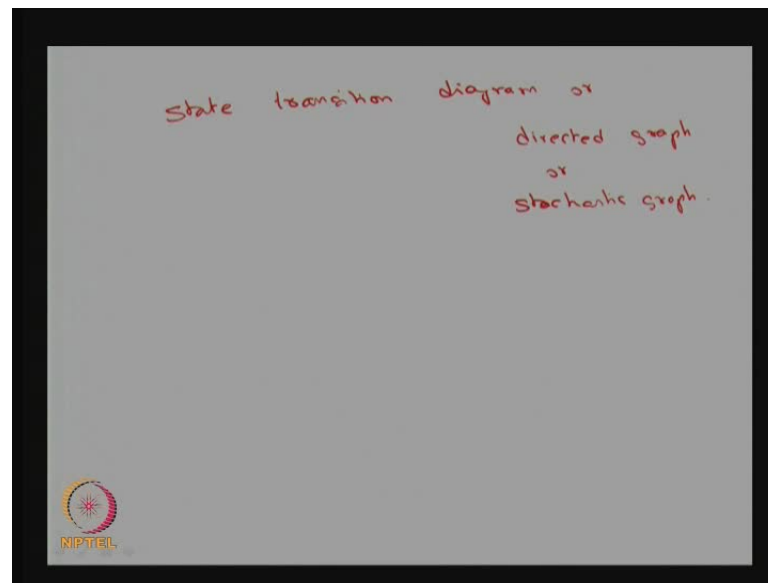 state transition diagram or
directed graph
or
stochastic graph.
NPTEL